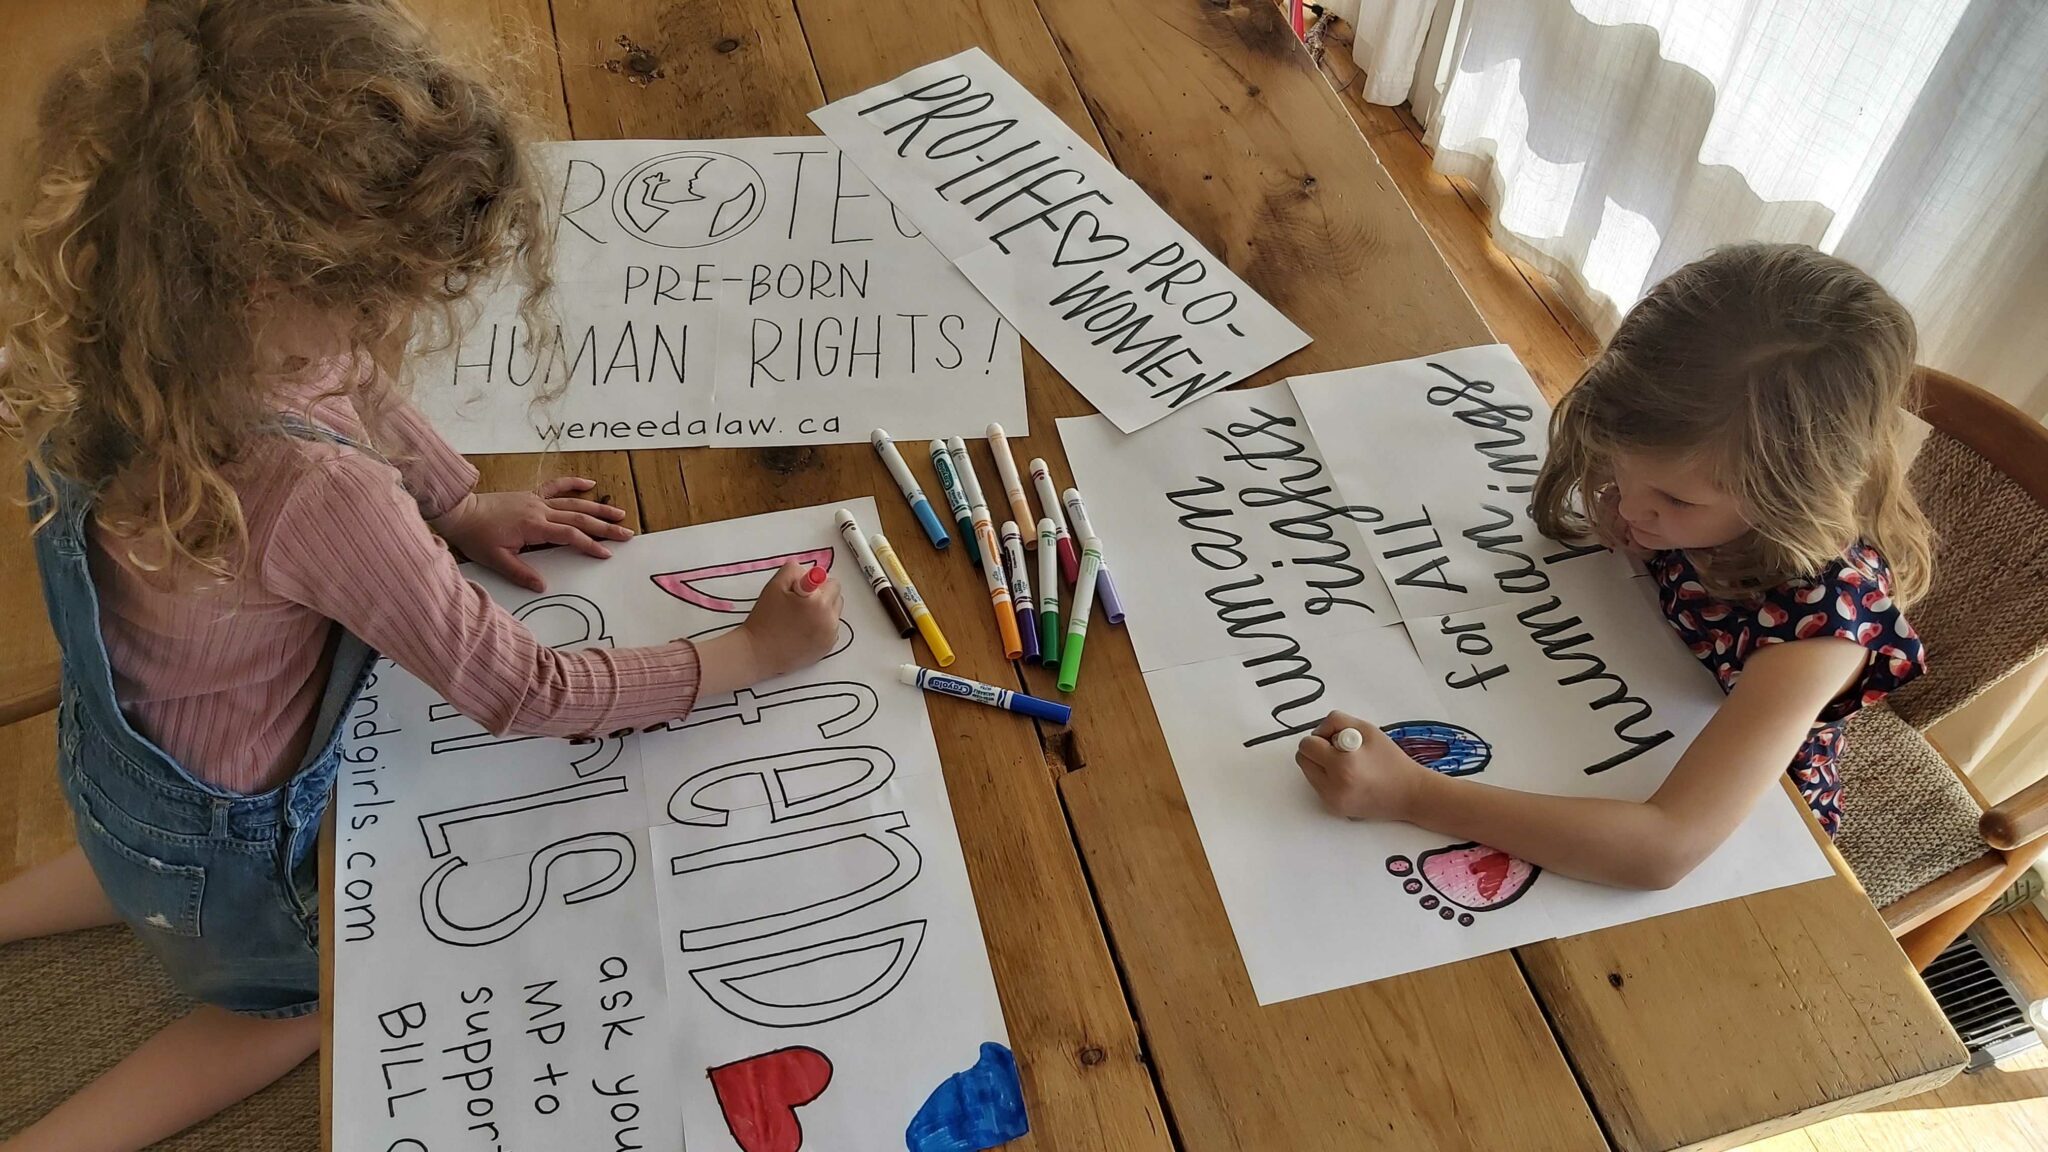 PRO-LIFE
PRO-
WOMEN
PRE-BORN
HUMAN RIGHTS!
weneedalaw.ca
human
rights
for ALL
human
DEfEND
giRLS
ask you
MP to
suppor
BILL
endgirls.com
Crayola